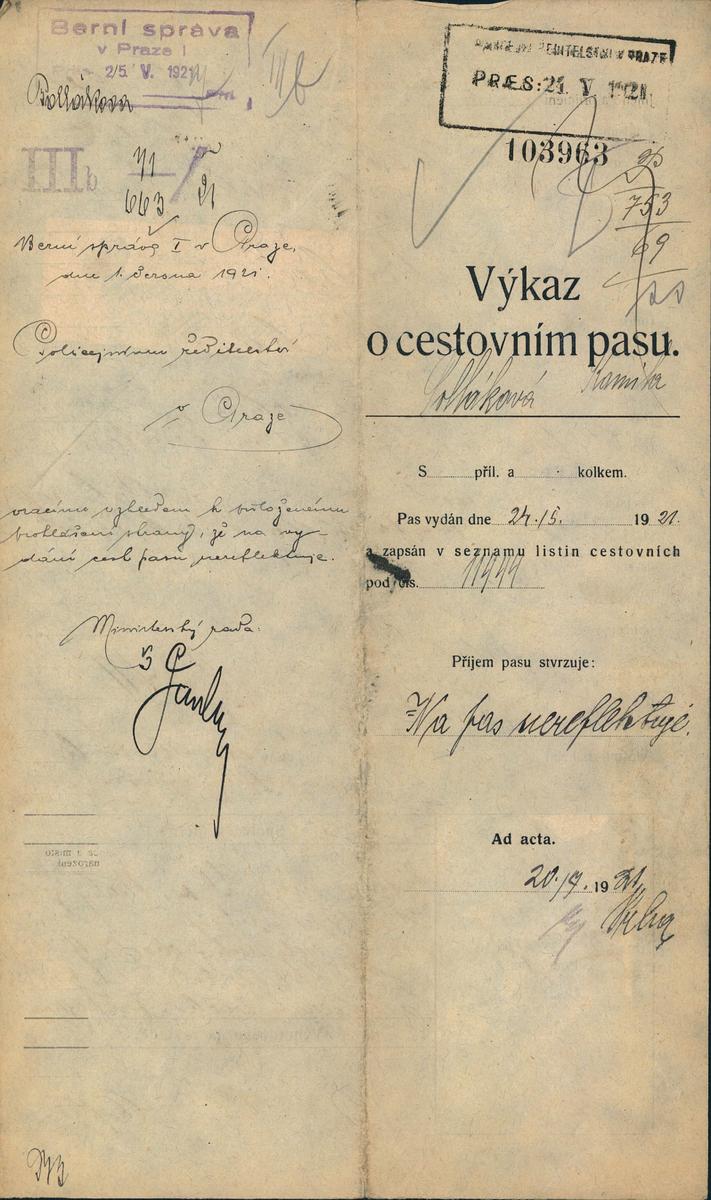 Berní správa
v Praze I
2/5. V. 1921
IIIb
Pollákova
IIIb
Berní správa I v Praze,
dne 1. června 1921.
Policejnímu ředitelství
v Praze
vracíme vzhledem k přiloženému
prohlášení strany, že na vy-
dání cest. pasu nereflektuje.
Ministerský rada:
PRÆS: 21. V. 1921.
103963
753
69
Výkaz
o cestovním pasu.
Polláková Kamila
S příl. a kolkem.
Pas vydán dne 24./5. 1921.
a zapsán v seznamu listin cestovních
pod čís. 11944
Příjem pasu stvrzuje:
Na pas nereflektuje.
Ad acta.